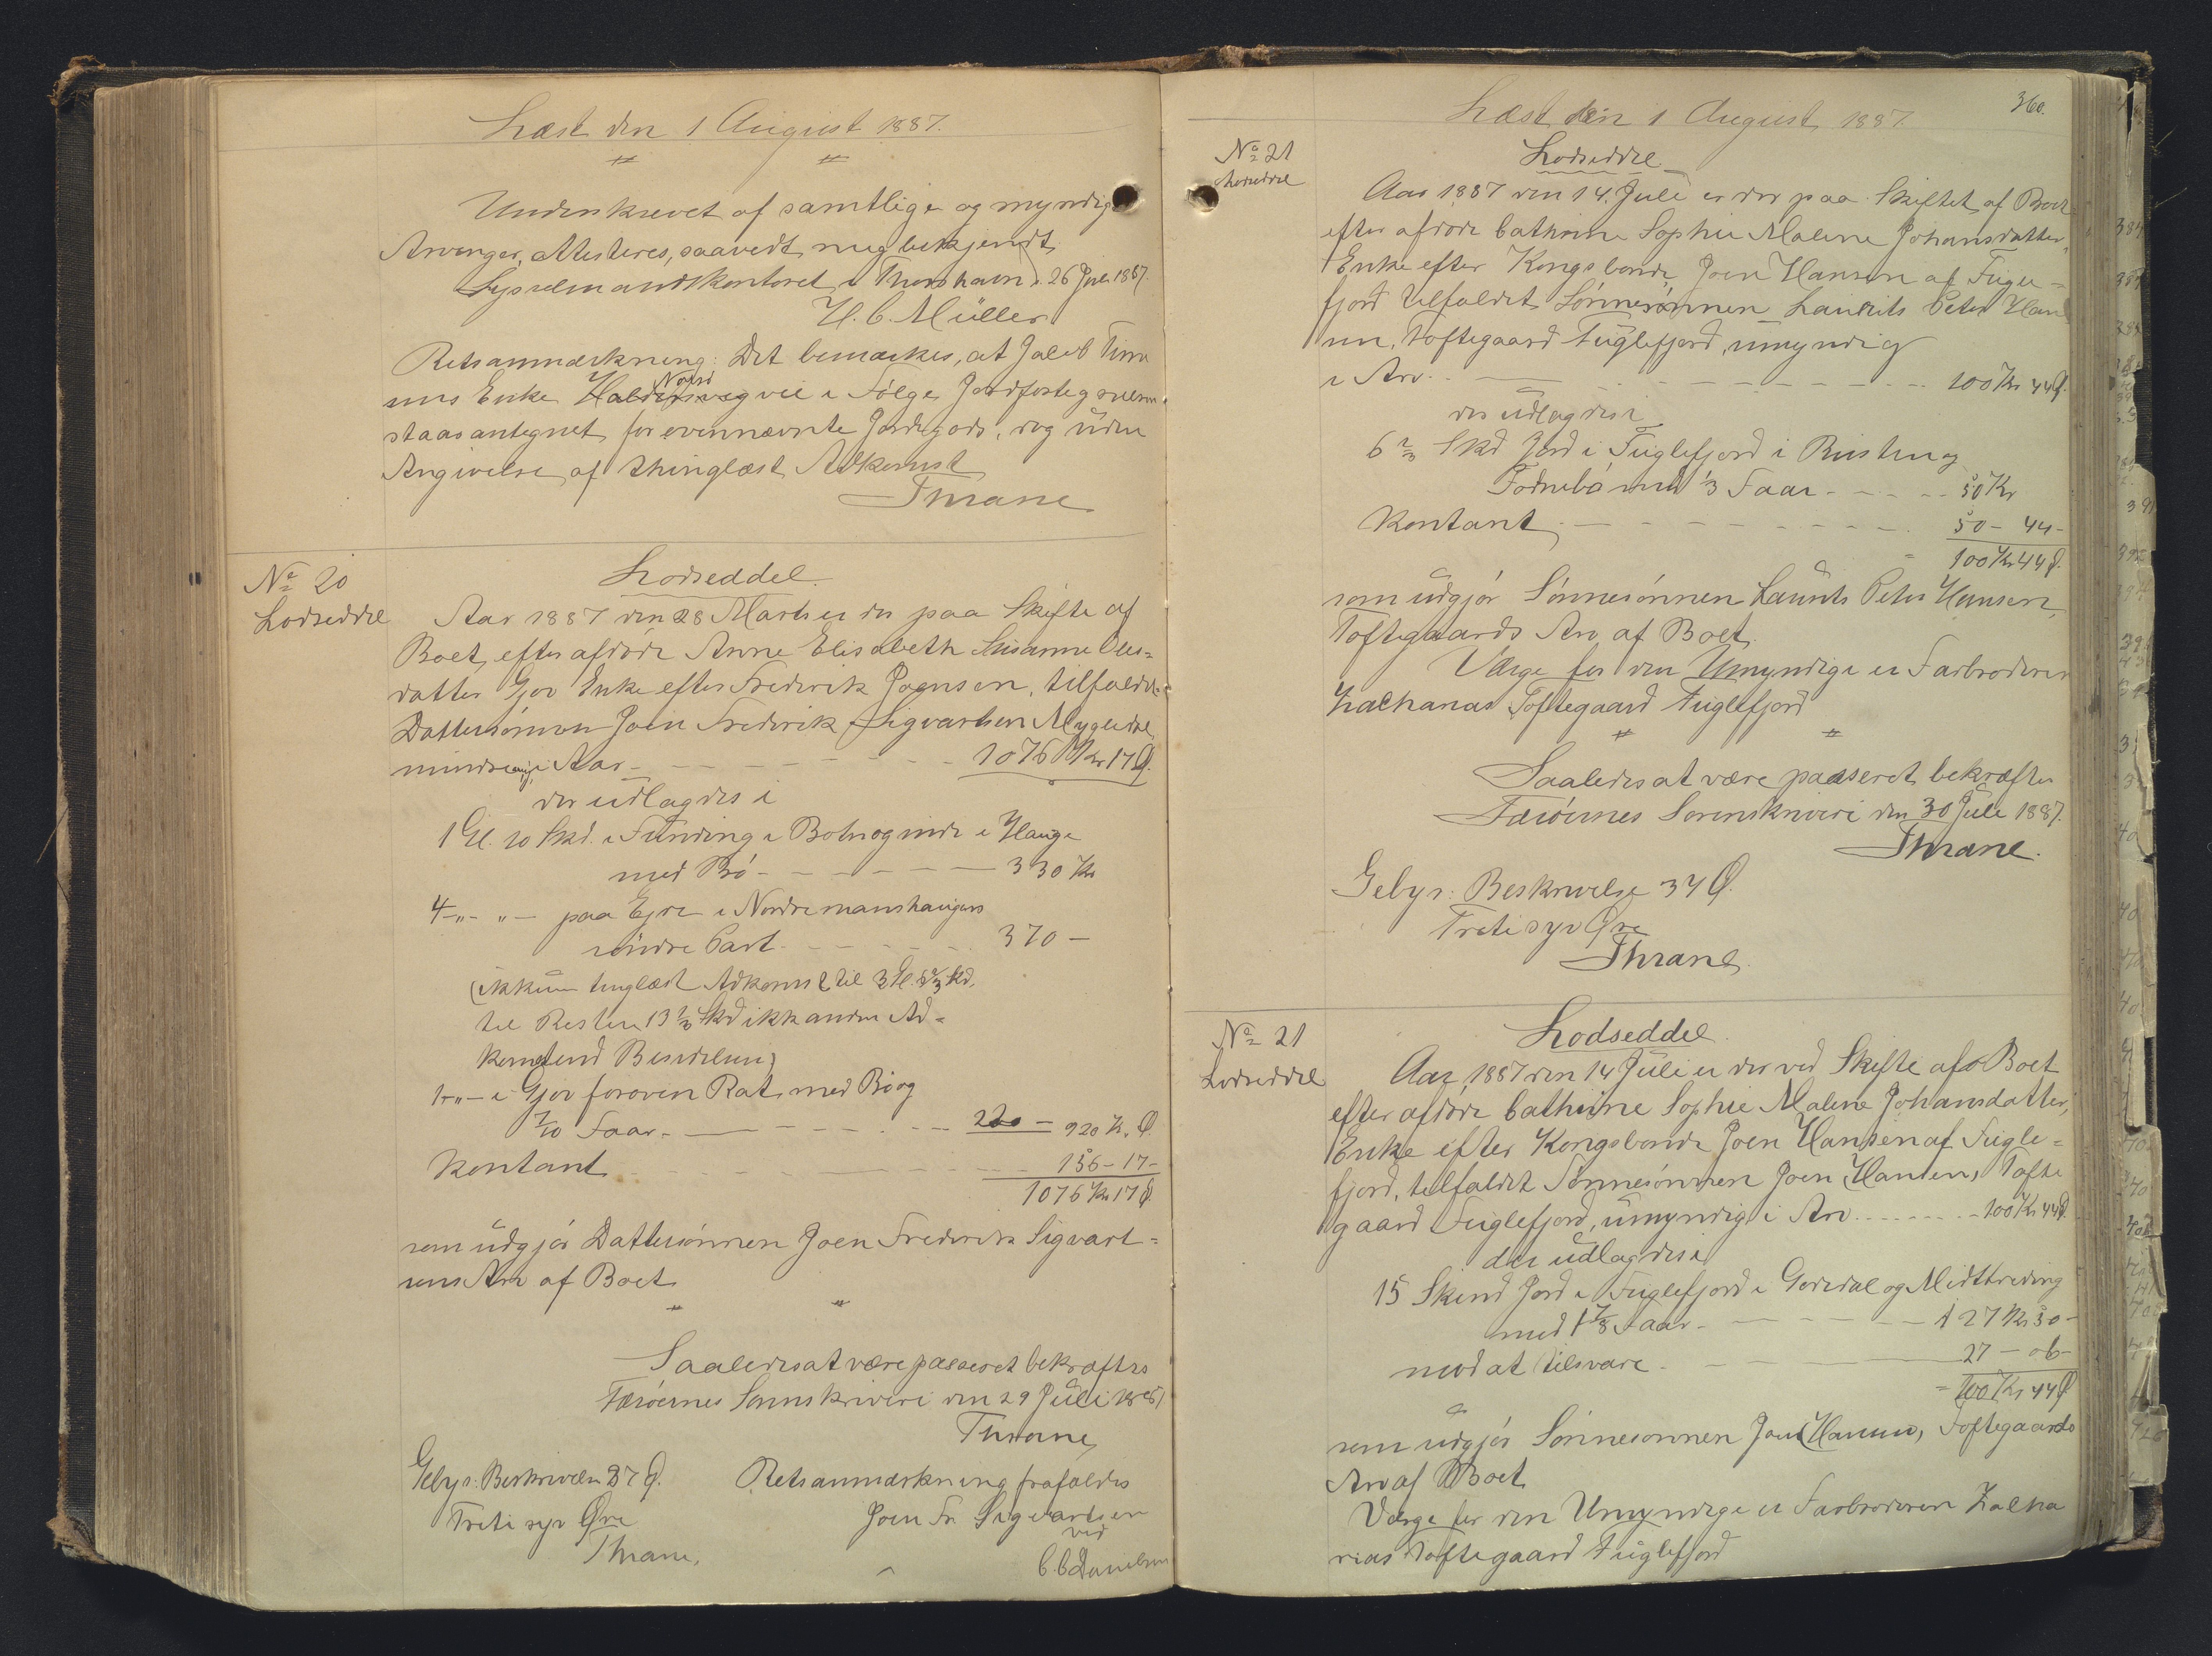 Læst den 1 August 1887.
Underskrevet af samtlige og myndige
Arvinger, attesteres, saavidt mig bekjendt
Sysselmandskontoret i Thorshavn d. 26 Juli 1887.
H. C. Müller
Retsanmærkning: Det bemærkes, at Jacob
Enke i Følge
staar antegnet for ovennævnte Jordegods, dog uden
Angivelse af thinglæst Adkomst
Thrane
No 20
Lodseddel
Lodseddel.
Aar 1887 den 28 Marts er der paa Skifte af
Boet efter afdøde Anne Elisabeth Susanne Ols=
datter Gjov Enke efter Frederik Joensen, tilfaldet
Dattersønnen Joen Frederik Sigvartsen Mygledal
mindreaarig i Arv - 1076 Kr 17 Ø.
der udlagdes i
1 Gl. 10 Skd. i Funding i Botn og inde i Hauge
med Bø - 330 Kr
4 - " - " - paa Ejde i Nordremanshauges
søndre Part - 370 -
(ikkun tinglæst Adkomst til 3 Gl. 6 2/3 Skd.
til Resten 13 1/3 Skd ikk anden Ad=
komst end Besiddelsen)
1 - " - i Gjov foroven Rat med Bø og
7/10 Faar - 220 - 920 Kr. Ø.
Kontant - 156 - 17 -
1076 Kr 17 Ø.
som udgjør Dattersønnen Joen Frederik Sigvart=
sens Arv af Boet
Saaledes at være passeret bekræftes
Færøernes Sorenskriveri den 29 Juli 1887
Thrane
Gebyr: Beskrivelse 37 Ø.
Treti syv Øre
Thrane.
Retsanmærkning frafaldes
Joen Fr. Sigvartsen
ved
C. C. Danielsen
360.
Læst den 1 August 1887.
No 21
Lodseddel
Lodseddel
Aar 1887 den 14. Juli er der paa Skiftet af Boet
efter afdøde Cathrine Sophie Malene Johansdatter,
Enke efter Kongsbonde Joen Hansen af Fugle=
fjord tilfaldet Sønnesønnen Laurits Peter Han
sen, Toftegaard Fuglefjord, umyndig
i Arv - 100 Kr 44 Ø.
der udlagdes i
6 2/3 Skd Jord i Fuglefjord i Rusten og
med 1/3 Faar - 50 Kr
Kontant - 50 - 44 -
100 Kr 44 Ø.
som udgjør Sønnesønnen Laurits Peter Hansen,
Toftegaards Arv af Boet.
Værge for den Umyndige er Farbroderen
Zacharias Toftegaard Fuglefjord
Saaledes at være passeret bekræfter
Færøernes Sorenskriveri den 30 Juli 1887.
Thrane.
Gebyr: Beskrivelse 37 Ø.
Treti syv Øre
Thrane
No 21
Lodseddel
Lodseddel
Aar 1887 den 14 Juli er der ved Skifte af Boet
efter afdøde Cathrine Sophie Malene Johansdatter,
Enke efter Kongsbonde Joen Hansen af Fugle=
fjord, tilfaldet Sønnesønnen Joen Hansen, Tofte
gaard Fuglefjord, umyndig i Arv - 100 Kr 44 Ø.
der udlagdes i
15 Skind Jord i Fuglefjord i Goredal og Midttreding
med 1 7/8 Faar - 127 Kr 50 -
mod at tilsvare - 27 - 06 -
= 100 Kr 44 Ø
som udgjør Sønnesønnen Joen Hansen, Toftegaards
Arv af Boet
Værge for den Umyndige er Farbroderen Zacha
rias Toftegaard Fuglefjord